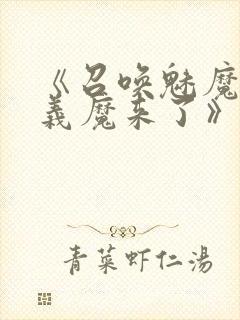 《召唤魅魔
義魔来了》
青菜虾仁湯